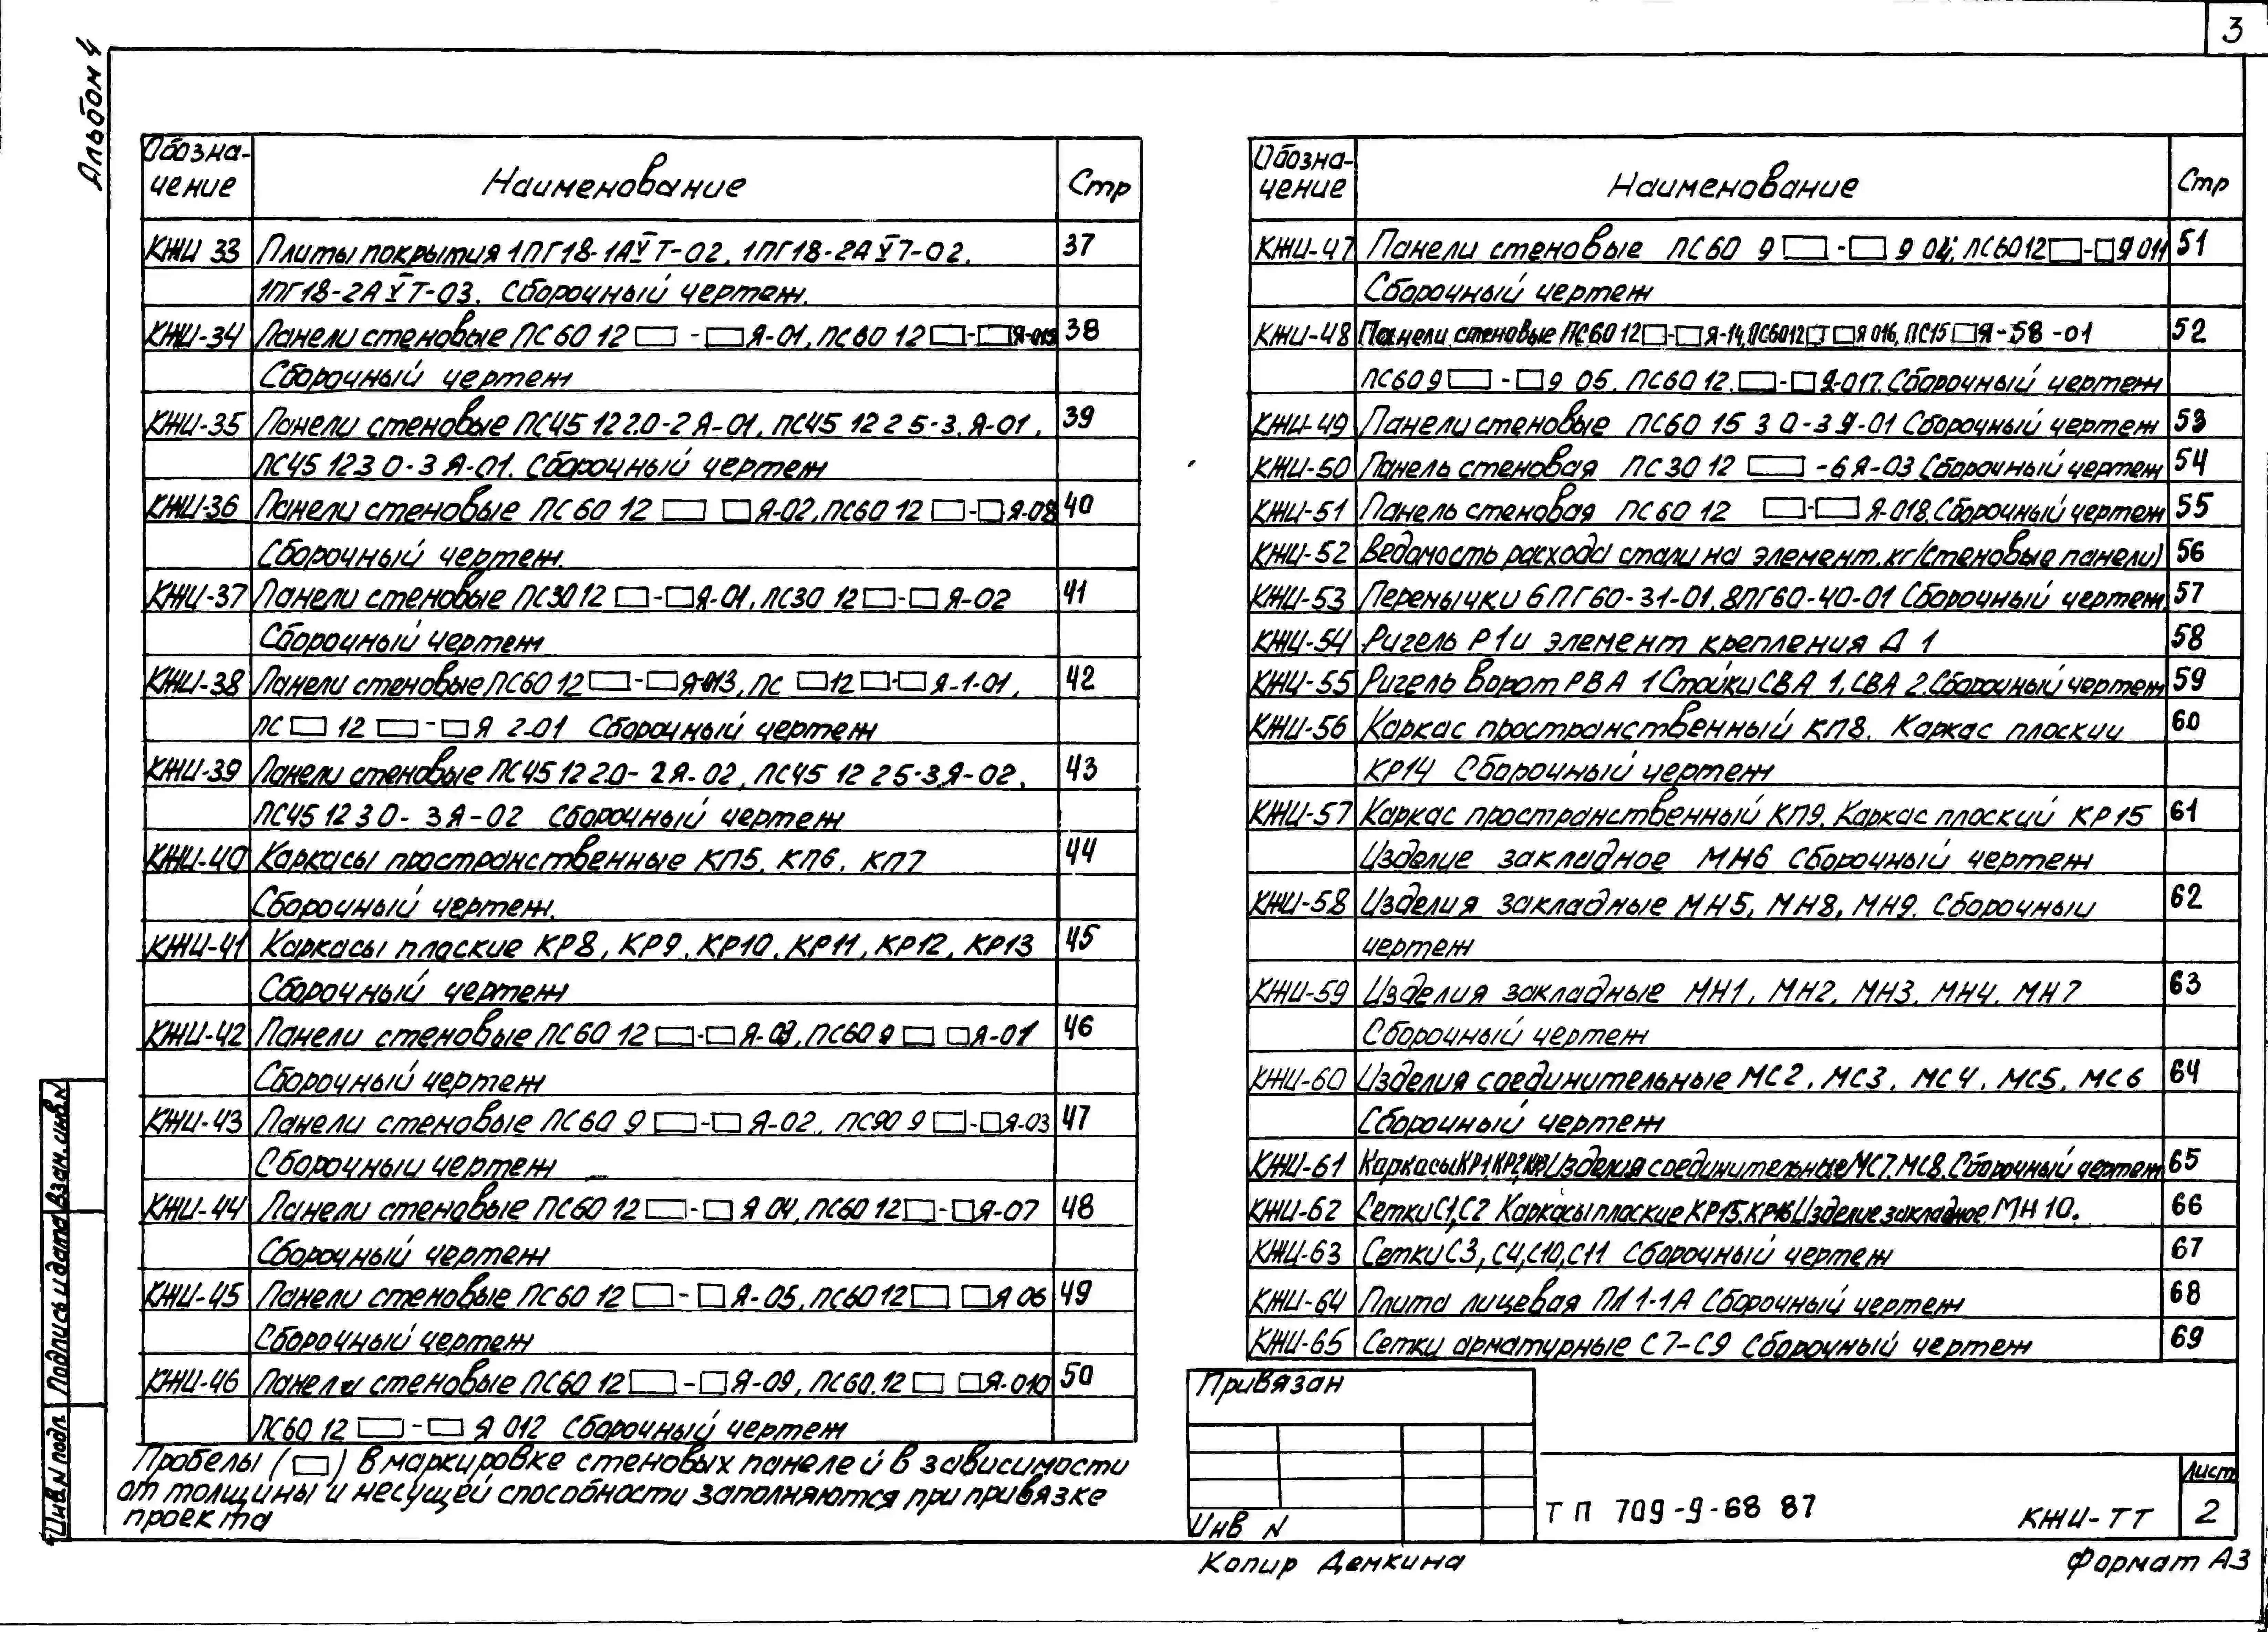 3
Альбом 4
Обозна-
чение
Наименование
Стр
КЖИ 33 Плиты покрытия 1ПГ18-1АV Т-02, 1ПГ18-2АV Т-02, 37
1ПГ18-2АV Т-03. Сборочный чертеж.
КЖИ-34 Панели стеновые ПС 60 12 □ - □Я-01, ПС 60 12 □-□Я-015 38
Сборочный чертеж
КЖИ-35 Панели стеновые ПС45 12 2.0-2 Я-01, ПС45 12 2 5-3.Я-01, 39
ПС45 12 3 0-3 Я-01. Сборочный чертеж
КЖИ-36 Панели стеновые ПС 60 12 □ □Я-02, ПС60 12 □-□Я-08 40
Сборочный чертеж.
КЖИ-37 Панели стеновые ПС30 12 □-□Я-01, ПС30 12□-□ Я-02 41
Сборочный чертеж
КЖИ-38 Панели стеновые ПС60 12□-□Я-013, ПС □12□-□Я-1-01, 42
ПС □ 12 □-□Я 2-01 Сборочный чертеж
КЖИ-39 Панели стеновые ПС45 12 2.0-2Я-02, ПС45 12 2 5-3.Я-02, 43
ПС45 12 3 0-3Я-02 Сборочный чертеж
КЖИ-40 Каркасы пространственные КП5, КП6, КП7 44
Сборочный чертеж.
КЖИ-41 Каркасы плоские КР8, КР9, КР10, КР11, КР12, КР13 45
Сборочный чертеж
КЖИ-42 Панели стеновые ПС60 12 □-□Я-03, ПС60 9 □ □Я-01 46
Сборочный чертеж
КЖИ-43 Панели стеновые ПС60 9 □-□ Я-02, ПС90 9 □-□Я-03 47
Сборочный чертеж
КЖИ-44 Панели стеновые ПС60 12 □-□ Я 04, ПС60 12□-□Я-07 48
Сборочный чертеж
КЖИ-45 Панели стеновые ПС60 12 □-□ Я-05, ПС60 12□ □Я 06 49
Сборочный чертеж
КЖИ-46 Панели стеновые ПС60 12□-□Я-09, ПС60.12 □ □Я-010 50
ПС60 12 □-□ Я 012 Сборочный чертеж
Пробелы (□) в маркировке стеновых панелей в зависимости
от толщины и несущей способности заполняются при привязке
проекта
Обозна-
чение
Наименование
Стр
КЖИ-47 Панели стеновые ПС60 9 □-□ 9 04; ПС60 12□-□Я 011 51
Сборочный чертеж
КЖИ-48 Панели стеновые ПС60 12□-□Я-14, ПС60 12□ □Я 016, ПС15 □Я-58-01 52
ПС60 9 □-□9 05, ПС60 12.□-□Я-017. Сборочный чертеж
КЖИ-49 Панели стеновые ПС60 15 3 0-3 Я-01 Сборочный чертеж 53
КЖИ-50 Панель стеновая ПС 30 12 □-6Я-03 Сборочный чертеж 54
КЖИ-51 Панель стеновая ПС 60 12 □-□ Я-018. Сборочный чертеж 55
КЖИ-52 Ведомость расхода стали на элемент, кг (стеновые панели) 56
КЖИ-53 Перемычки 6ПГ60-31-01, 8ПГ60-40-01 Сборочный чертеж 57
КЖИ-54 Ригель Р1 и элемент крепления Д 1 58
КЖИ-55 Ригель ворот РВА 1 Стойки СВА 1, СВА 2. Сборочный чертеж 59
КЖИ-56 Каркас пространственный КП8. Каркас плоский 60
КР14 Сборочный чертеж
КЖИ-57 Каркас пространственный КП9. Каркас плоский КР15 61
Изделие закладное МН6 Сборочный чертеж
КЖИ-58 Изделия закладные МН5, МН8, МН9. Сборочный 62
чертеж
КЖИ-59 Изделия закладные МН1, МН2, МН3, МН4, МН7 63
Сборочный чертеж
КЖИ-60 Изделия соединительные МС2, МС3, МС4, МС5, МС6 64
Сборочный чертеж
КЖИ-61 Каркасы КР1, КР2, Изделия соединительные МС7, МС8. Сборочный чертеж 65
КЖИ-62 Сетки С1, С2 Каркасы плоские КР15, КР16 Изделие закладное МН 10. 66
КЖИ-63 Сетки С3, С4, С10, С11 Сборочный чертеж 67
КЖИ-64 Плита лицевая ПЛ 1-1А Сборочный чертеж 68
КЖИ-65 Сетки арматурные С7-С9 Сборочный чертеж 69
Привязан
Инв N
Т П 709-9-68 87
КЖИ-ТТ
Лист
2
Копир Демкина
Формат А3
Взам.инв.N
Подпись и дата
Инв.N подл.